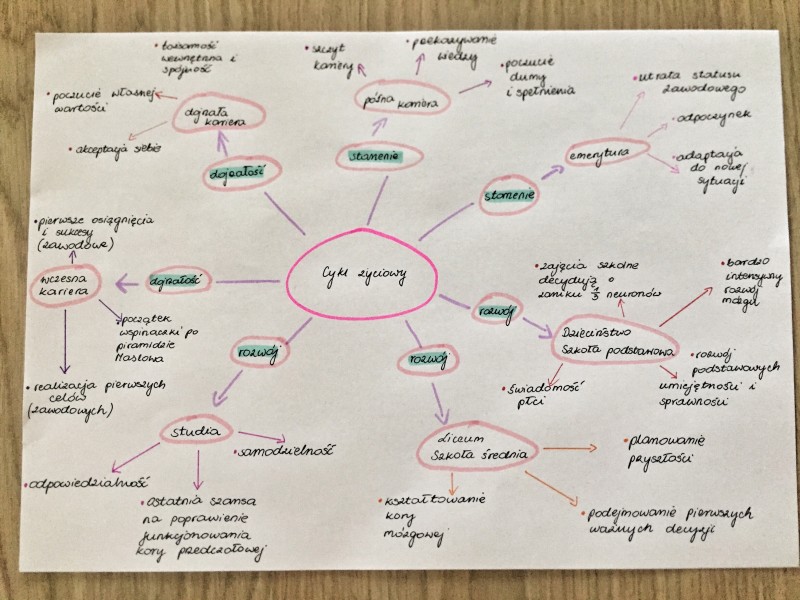 Cykl życiowy
rozwój
Dzieciństwo
Szkoła podstawowa
• zajęcia szkolne
decydują o
zaniku 1/3 neuronów
• bardzo
intensywny
rozwój
mózgu
• rozwój
podstawowych
umiejętności i
sprawności
• świadomość
płci
rozwój
Liceum
Szkoła średnia
• planowanie
przyszłości
• podejmowanie pierwszych
ważnych decyzji
• kształtowanie
kory
mózgowej
rozwój
studia
• samodzielność
• ostatnia szansa
na poprawienie
funkcjonowania
kory przedczołowej
• odpowiedzialność
dojrzałość
wczesna
kariera
• pierwsze osiągnięcia
i sukcesy
(zawodowe)
• początek
wspinaczki po
piramidzie
Maslowa
• realizacja pierwszych
celów
(zawodowych)
dojrzałość
dojrzała
kariera
• tożsamość
wewnętrzna i
spójność
• poczucie własnej
wartości
• akceptacja siebie
starzenie
późna kariera
• szczyt
kariery
• przekazywanie
wiedzy
• poczucie
dumy
i spełnienia
starzenie
emerytura
• utrata statusu
zawodowego
• odpoczynek
• adaptacja
do nowej
sytuacji